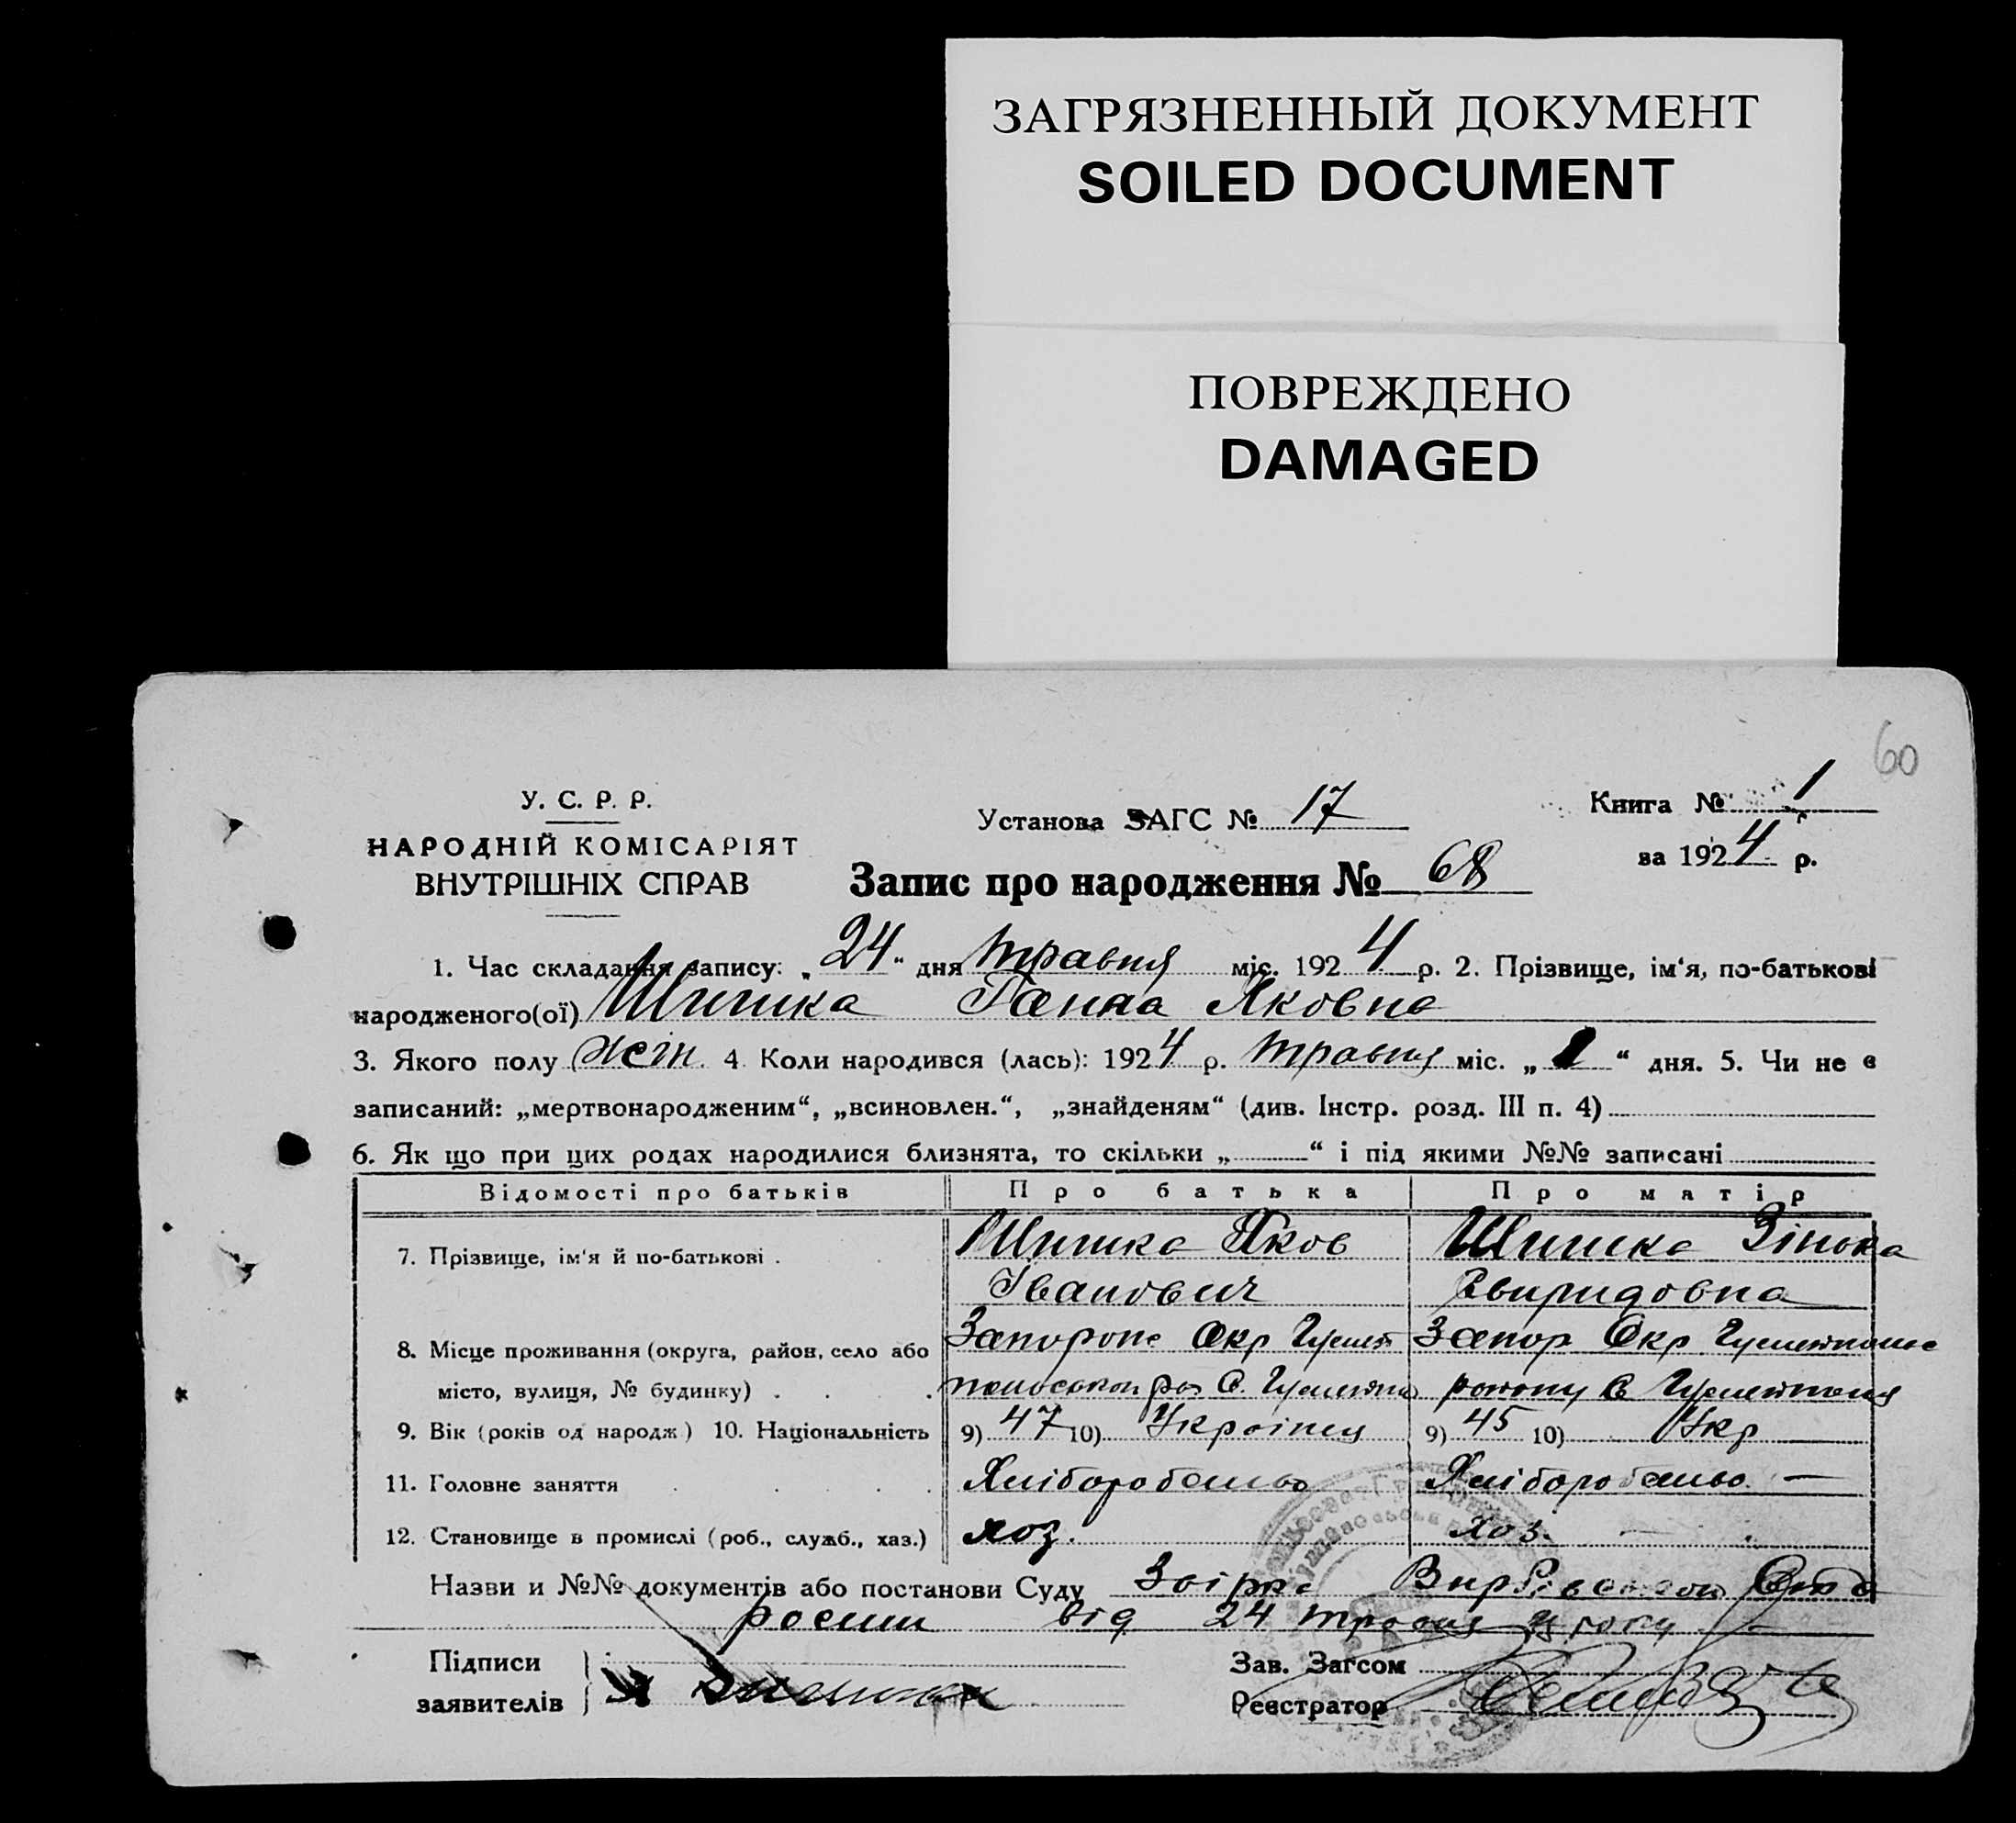 ЗАГРЯЗНЕННЫЙ ДОКУМЕНТ
SOILED DOCUMENT
ПОВРЕЖДЕНО
DAMAGED
60
У. С. Р. Р.
НАРОДНІЙ КОМІСАРІЯТ
ВНУТРІШНІХ СПРАВ
Установа ЗАГС № 17
Книга № 1
за 1924 р.
Запис про народження № 68
1. Час складання запису: „24“ дня травня міс. 1924 р. 2. Прізвище, ім'я, по-батькові
народженого(ої) Шишка Ганна Яковна
3. Якого полу жін. 4. Коли народився (лась): 1924 р. травня міс. „1“ дня. 5. Чи не є
записаний: „мертвонародженим“, „всиновлен.“, „знайденям“ (див. Інстр. розд. III п. 4)
6. Як що при цих родах народилися близнята, то скільки „ “ і під якими №№ записані
Відомості про батьків Про батька Про матір
7. Прізвище, ім'я й по-батькові . Шишка Яков Шишка Зінька
Іванович Свиридовна
8. Місце проживання (округа, район, село або Запоропс Окр Гуляй Запор Окр
місто, вулиця, № будинку) . . . . району С
9. Вік (років од народж) 10. Національність 9) 47 10) Украінец 9) 45 10) Укр
11. Головне заняття . . . . Хліборобство Хліборобство —
12. Становище в промислі (роб., служб., хаз.) хоз. хоз.
Назви и №№ документів або постанови Суду
від 24 травня року
Підписи
заявителів
Зав. Загсом
Реєстратор